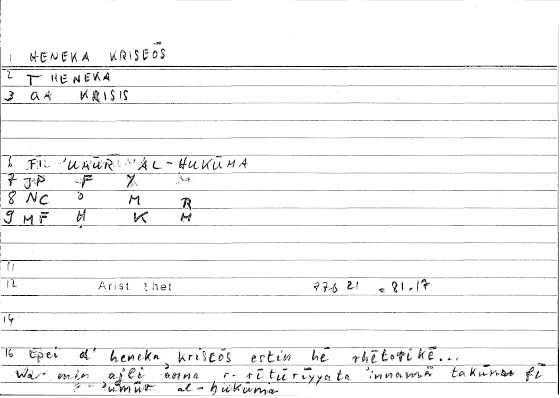 1 HENEKA KRISEŌS
2 T HENEKA
3 GA KRISIS
6 FĪ 'UMŪR AL-ḤUKŪMA
7 JP F
8 NC M R
9 MF H K M
11
12 Arist Rhet 77b 21 = 81.17
14
16 Epei d' heneka kriseōs estin hē rhētorikē...
Wa-min ajli anna r-rīṭūriyyata innamā takūnu fī
'umūr al-ḥukūma